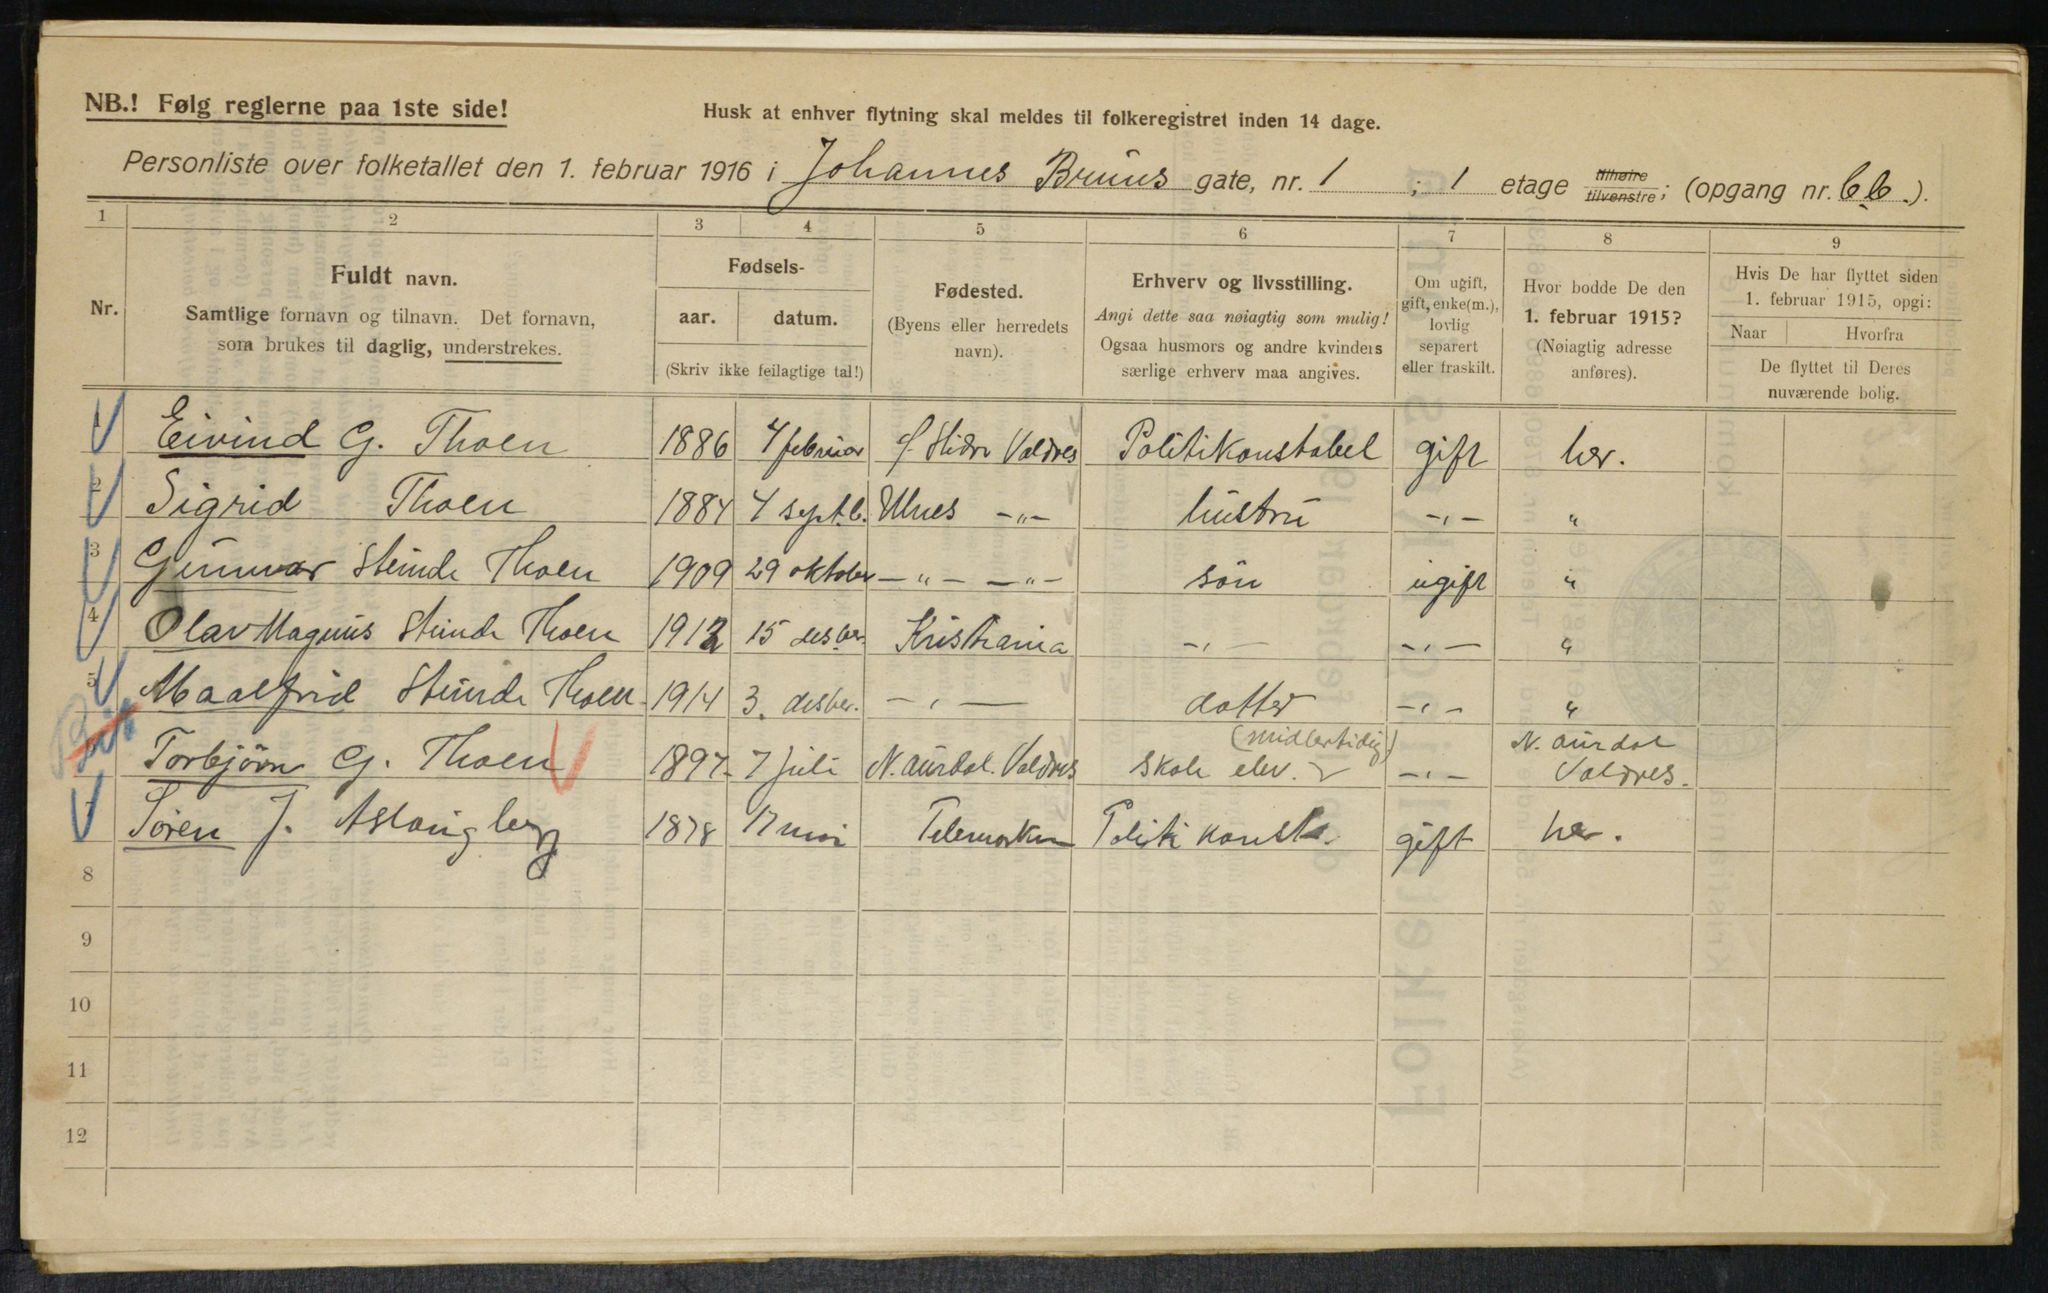 NB.! Følg reglerne paa 1ste side!
Husk at enhver flytning skal meldes til folkeregistret inden 14 dage.
Personliste over folketallet den 1. februar 1916 i Johannes Bruns gate, nr. 1 ; 1 etage tilhøire tilvenstre; (opgang nr. 6 b.).
1 2 3 4 5 6 7 8 9
Nr.
Fuldt navn.
Samtlige fornavn og tilnavn. Det fornavn,
som brukes til daglig, understrekes.
Fødsels-
aar. datum.
(Skriv ikke feilagtige tal!)
Fødested.
(Byens eller herredets
navn).
Erhverv og livsstilling.
Angi dette saa nøiagtig som mulig!
Ogsaa husmors og andre kvinders
særlige erhverv maa angives.
Om ugift,
gift, enke(m.),
lovlig
separert
eller fraskilt.
Hvor bodde De den
1. februar 1915?
(Nøiagtig adresse
anføres).
Hvis De har flyttet siden
1. februar 1915, opgi:
Naar Hvorfra
De flyttet til Deres
nuværende bolig.
1 Eivind G. Thoen 1886 4 februar Slidre Valdres Politikonstabel gift her.
2 Sigrid Thoen 1884 4 septb. Ulnes -"- hustru -"- "
3 Gunnar Steinde Thoen 1909 29 oktober -"- -"- sön ugift "
4 Olav Magnus Steinde Thoen 1912 15 desber. Kristiania -"- -"- "
5 Maalfrid Steinde Thoen 1914 3. desber. -"- datter -"- "
Torbjörn G. Thoen 1897 7 juli N. Aurdal. Valdres skole elev. (midlertidig) -"- N. Aurdal Valdres.
7 Sören J. Aslaugberg 1878 17 mai Telemarken Politi konst. gift her.
8
9
10
11
12